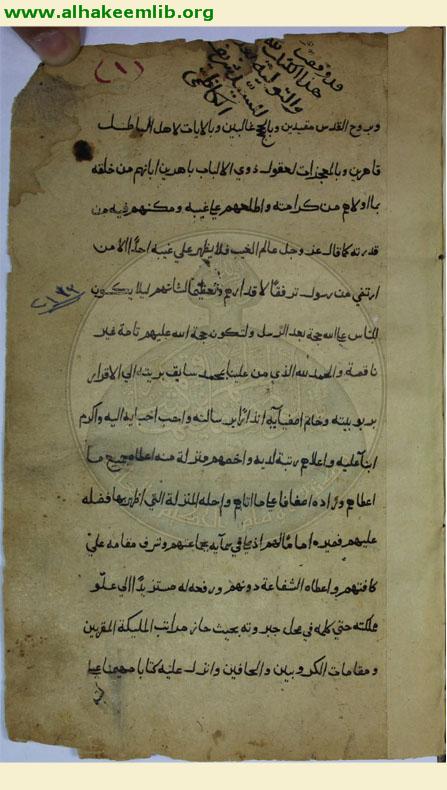 www.alhakeemlib.org
(١)
قد وقفت
هذا الكتاب لله
والتولية
للسيد شريف
الكاظمي
وبروح القدس مقيدين وبالحجج غالبين وبالايات لاهل الباطل
قاهرين وبالمعجزات لعقول ذوي الالباب باهرين ابانهم من خلقه
بما اولاهم من كرامته واطلعهم علي غيبه ومكنهم فيه من
قدرته كما قال عز وجل عالم الغيب فلا يظهر علي غيبه احدًا الا من
ارتضي من رسول ترفعًا لاقدارهم وتعظيمًا لشانهم ليلا يكون
للناس علي الله حجة بعد الرسل ولتكون حجة الله عليهم تامة غير
ناقصة والحمد لله الذي من علينا بمحمد سابق بريته الي الاقرار
بربوبيته وخاتم اصفيآيه انذارًا برسالته واحب احبايه اليه واكرم
انبيآيه عليه واعلاهم رتبة لديه واخصهم منزلة منه اعطاه جميع ما
اعطاهم وزاده اضعافا علي ما اتاهم واحله المنزلة التي اظهر بها فضله
عليهم فصيره اماما لهم اذ في سمآيه بجماعتهم وشرف مقامه علي
كافتهم واعطاه الشفاعة دونهم ورفعه له مستزيدًا الي علو
ملكته حتي كلمه في محل جبروته بحيث حاز مراتب المليكة المقربين
ومقامات الكروبين والحافين وانزل عليه كتابا مهيمنا علي